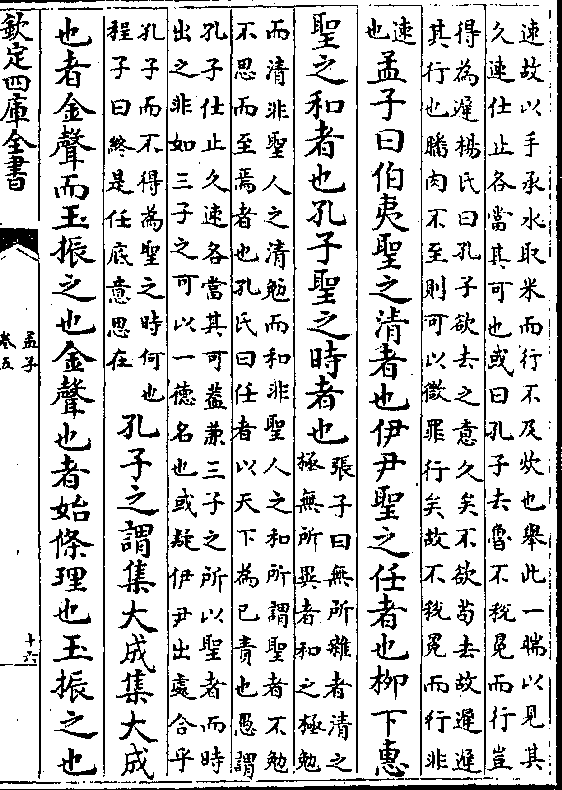 速故以手承水取米而行不及炊也舉此一端以見其
久速仕止各當其可也或曰孔子去魯不稅冕而行豈
得為遲楊氏曰孔子欲去之意久矣不欲苟去故遲遲
其行也膰肉不至則可以微罪行矣故不稅冕而行非
速
也
孟子曰伯夷聖之清者也伊尹聖之任者也柳下惠
聖之和者也孔子聖之時者也
張子曰無所雜者清之
極無所異者和之極勉
而清非聖人之清勉而和非聖人之和所謂聖者不勉
不思而至焉者也孔氏曰任者以天下為已責也愚謂
孔子仕止久速各當其可蓋兼三子之所以聖者而時
出之非如三子之可以一德名也或疑伊尹出處合乎
孔子而不得為聖之時何也
程子曰終是任底意思在
孔子之謂集大成集大成
也者金聲而玉振之也金聲也者始條理也玉振之也
欽定四庫全書
孟子
卷五
十六